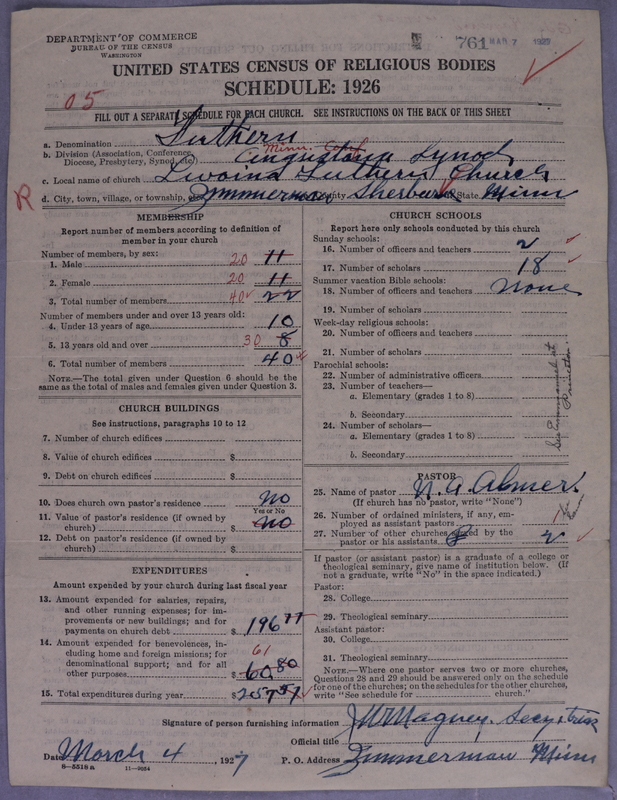 DEPARTMENT OF COMMERCE
BUREAU OF THE CENSUS
WASHINGTON
761 MAR 7 1927
UNITED STATES CENSUS OF RELIGIOUS BODIES
SCHEDULE: 1926
05
FILL OUT A SEPARATE SCHEDULE FOR EACH CHURCH. SEE INSTRUCTIONS ON THE BACK OF THIS SHEET
a. Denomination Luthern
Minn. Conf.
b. Division (Association, Conference, Diocese, Presbytery, Synod, etc.) Augustana Synod
c. Local name of church Livonia Lutheran Church
R d. City, town, village, or township, etc. Zimmerman County Sherburn State Minn
MEMBERSHIP
Report number of members according to definition of member in your church
Number of members, by sex:
1. Male 20 11
2. Female 20 11
3. Total number of members 40 22
Number of members under and over 13 years old:
4. Under 13 years of age 10
5. 13 years old and over 30 8
6. Total number of members 40
NOTE.—The total given under Question 6 should be the same as the total of males and females given under Question 3.
CHURCH BUILDINGS
See instructions, paragraphs 10 to 12
7. Number of church edifices
8. Value of church edifices $
9. Debt on church edifices $
10. Does church own pastor's residence No
Yes or No
11. Value of pastor's residence (if owned by church) $ No
12. Debt on pastor's residence (if owned by church) $
EXPENDITURES
Amount expended by your church during last fiscal year
13. Amount expended for salaries, repairs, and other running expenses; for improvements or new buildings; and for payments on church debt $ 196 77
14. Amount expended for benevolences, including home and foreign missions; for denominational support; and for all other purposes $ 61 60 80
15. Total expenditures during year $ 257 57
CHURCH SCHOOLS
Report here only schools conducted by this church
Sunday schools:
16. Number of officers and teachers 2
17. Number of scholars 18
Summer vacation Bible schools:
18. Number of officers and teachers None
19. Number of scholars
Week-day religious schools:
20. Number of officers and teachers
21. Number of scholars
Parochial schools:
22. Number of administrative officers
23. Number of teachers—
a. Elementary (grades 1 to 8)
b. Secondary
24. Number of scholars—
a. Elementary (grades 1 to 8)
b. Secondary
See Immanuel at Princeton
PASTOR
25. Name of pastor N. A. Almer
(If church has no pastor, write "None")
26. Number of ordained ministers, if any, employed as assistant pastors
27. Number of other churches served by the pastor or his assistants 2
If pastor (or assistant pastor) is a graduate of a college or theological seminary, give name of institution below. (If not a graduate, write "No" in the space indicated.)
Pastor:
28. College
29. Theological seminary
Assistant pastor:
30. College
31. Theological seminary
NOTE.—Where one pastor serves two or more churches, Questions 28 and 29 should be answered only on the schedule for one of the churches; on the schedules for the other churches, write "See schedule for church."
Signature of person furnishing information J M Magney
Official title Secy & Treas
Date March 4, 1927 P. O. Address Zimmerman Minn
8—5518a 11—9034